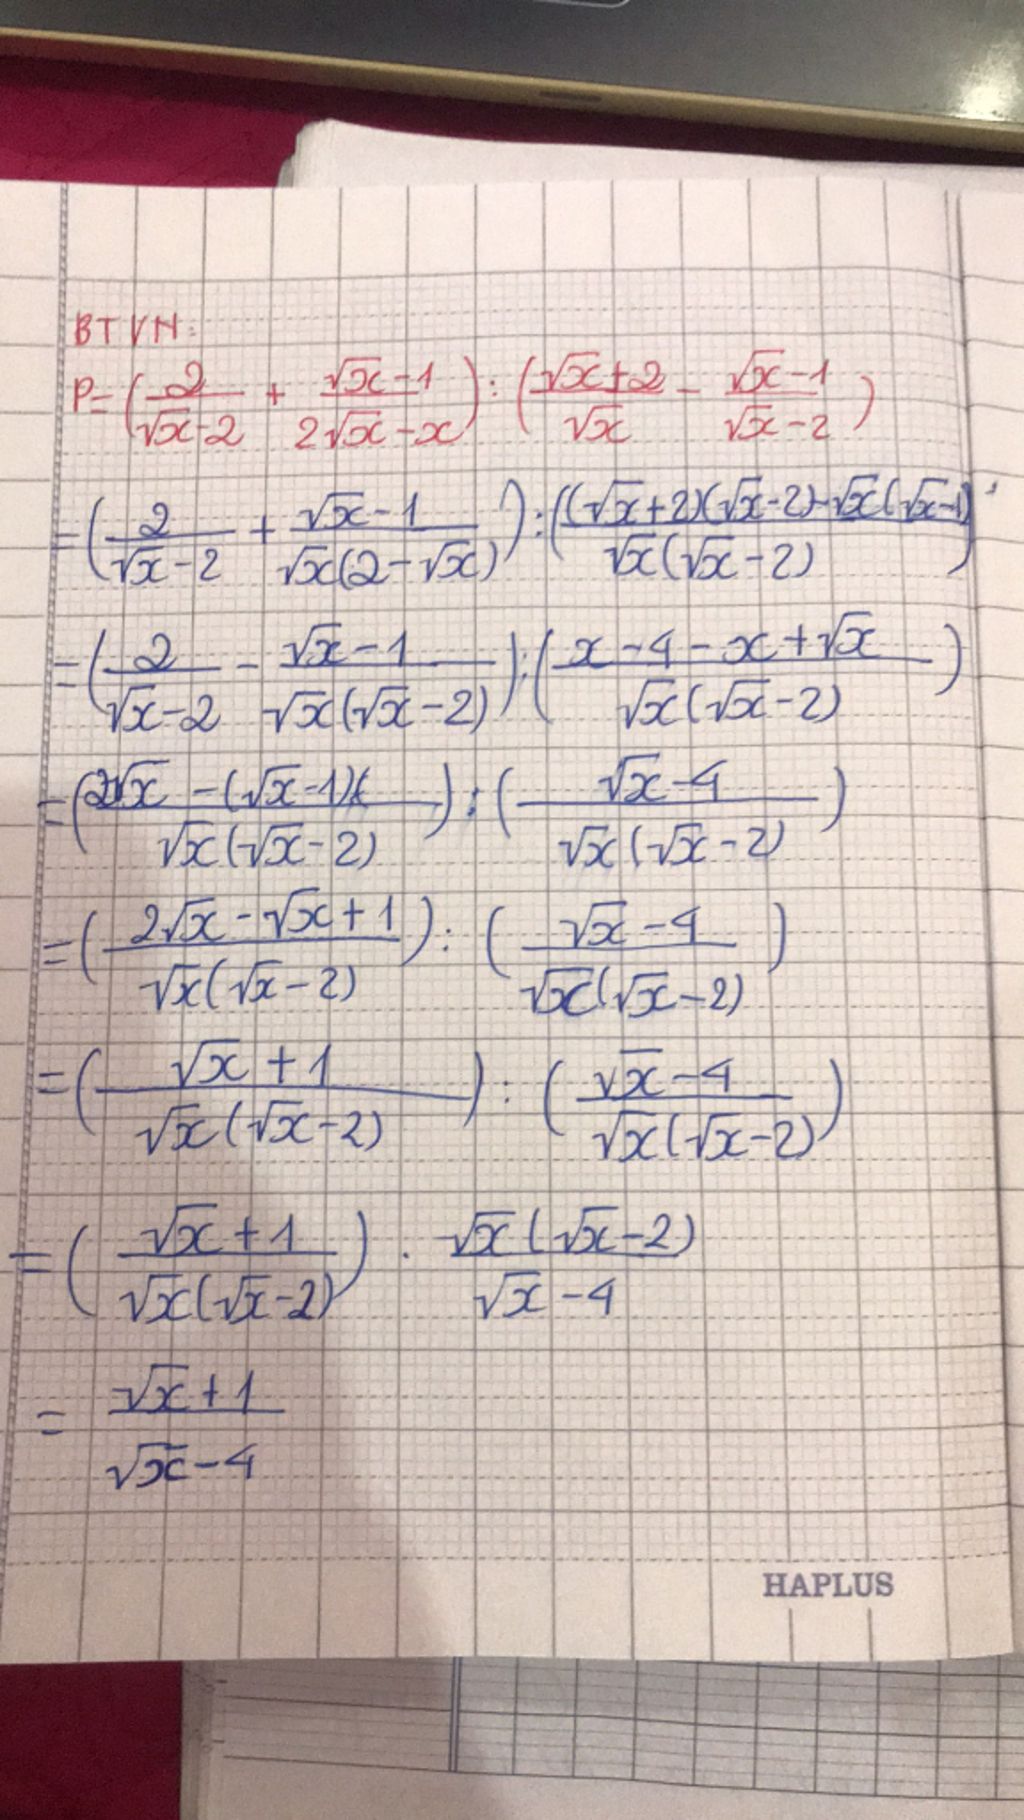 BTVN:
P = (2/(√x-2) + (√x-1)/(2√x-x)) : ((√x+2)/√x - (√x-1)/(√x-2))
= (2/(√x-2) + (√x-1)/(√x(2-√x))) : (((√x+2)(√x-2)-√x(√x-1))/(√x(√x-2)))
= (2/(√x-2) - (√x-1)/(√x(√x-2))) : ((x-4-x+√x)/(√x(√x-2)))
= ((2√x-(√x-1))/(√x(√x-2))) : ((√x-4)/(√x(√x-2)))
= ((2√x-√x+1)/(√x(√x-2))) : ((√x-4)/(√x(√x-2)))
= ((√x+1)/(√x(√x-2))) : ((√x-4)/(√x(√x-2)))
= ((√x+1)/(√x(√x-2))) . (√x(√x-2))/(√x-4)
= (√x+1)/(√x-4)
HAPLUS